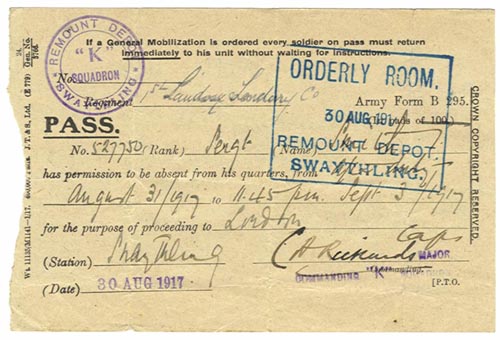 If a General Mobilization is ordered every soldier on pass must return
immediately to his unit without waiting for instructions.
REMOUNT DEPOT
"K"
SQUADRON
SWAYTHLING
No.
Regiment 1st London Sanitary Co
ORDERLY ROOM.
30 AUG 191
REMOUNT DEPOT
SWAYTHLING.
Army Form B 295.
(In pads of 100.)
PASS.
No. 527750 (Rank) Sergt Name)
has permission to be absent from his quarters, from
August 31/1917 to 11.45 pm. Sept 3/1917
for the purpose of proceeding to London
(Station) Swaythling
Capt
MAJOR
Commanding.
COMMANDING "K"
(Date) 30 AUG 1917
[P.T.O.
CROWN COPYRIGHT RESERVED.